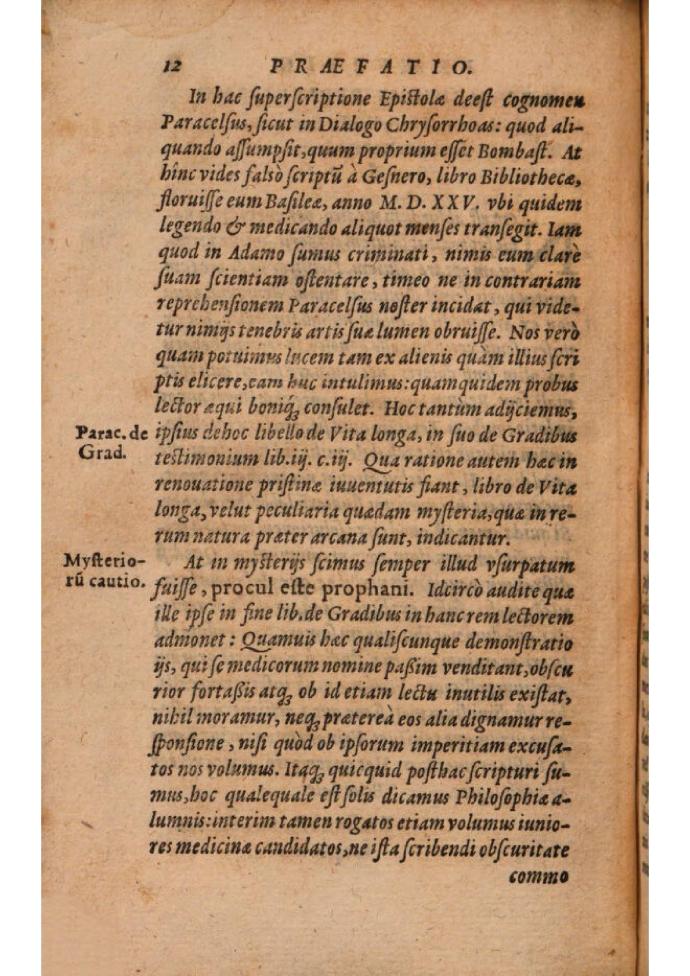 12 PRÆFATIO.
In hac ſuperſcriptione Epiſtolæ deeſt cognomen
Paracelſus, ſicut in Dialogo Chryſorrhoas: quod ali-
quando aſſumpſit, quum proprium eſſet Bombaſt. At
hînc vides falsò ſcriptũ à Geſnero, libro Bibliothecæ,
floruiſſe eum Baſileæ, anno M. D. XXV. vbi quidem
legendo & medicando aliquot menſes tranſegit. Iam
quod in Adamo ſumus criminati, nimis eum clarè
ſuam ſcientiam oſtentare, timeo ne in contrariam
reprehenſionem Paracelſus noſter incidat, qui vide-
tur nimijs tenebris artis ſuæ lumen obruiſſe. Nos verò
quam potuimus lucem tam ex alienis quàm illius ſcri
ptis elicere, eam huc intulimus: quam quidem probus
lector æqui boniq́ꝫ conſulet. Hoc tantùm adijciemus,
Parac. de
Grad.
ipſius de hoc libello de Vita longa, in ſuo de Gradibus
teſtimonium lib. iij. c. iij. Qua ratione autem hæc in
renouatione priſtinæ iuuentutis fiant, libro de Vita
longa, velut peculiaria quædam myſteria, quæ in re-
rum natura præter arcana ſunt, indicantur.
Myſterio-
rũ cautio.
At in myſterijs ſcimus ſemper illud vſurpatum
fuiſſe, procul eſte prophani. Idcircò audite quæ
ille ipſe in fine lib. de Gradibus in hanc rem lectorem
admonet: Quamuis hæc qualiſcunque demonſtratio
ijs, qui ſe medicorum nomine paßim venditant, obſcu
rior fortaßis atqꝫ ob id etiam lectu inutilis exiſtat,
nihil moramur, neqꝫ prætereà eos alia dignamur re-
ſponſione, niſi quòd ob ipſorum imperitiam excuſa-
tos nos volumus. Itaqꝫ quicquid poſthac ſcripturi ſu-
mus, hoc qualequale eſt ſolis dicamus Philoſophiæ a-
lumnis: interim tamen rogatos etiam volumus iunio-
res medicinæ candidatos, ne iſta ſcribendi obſcuritate
commo